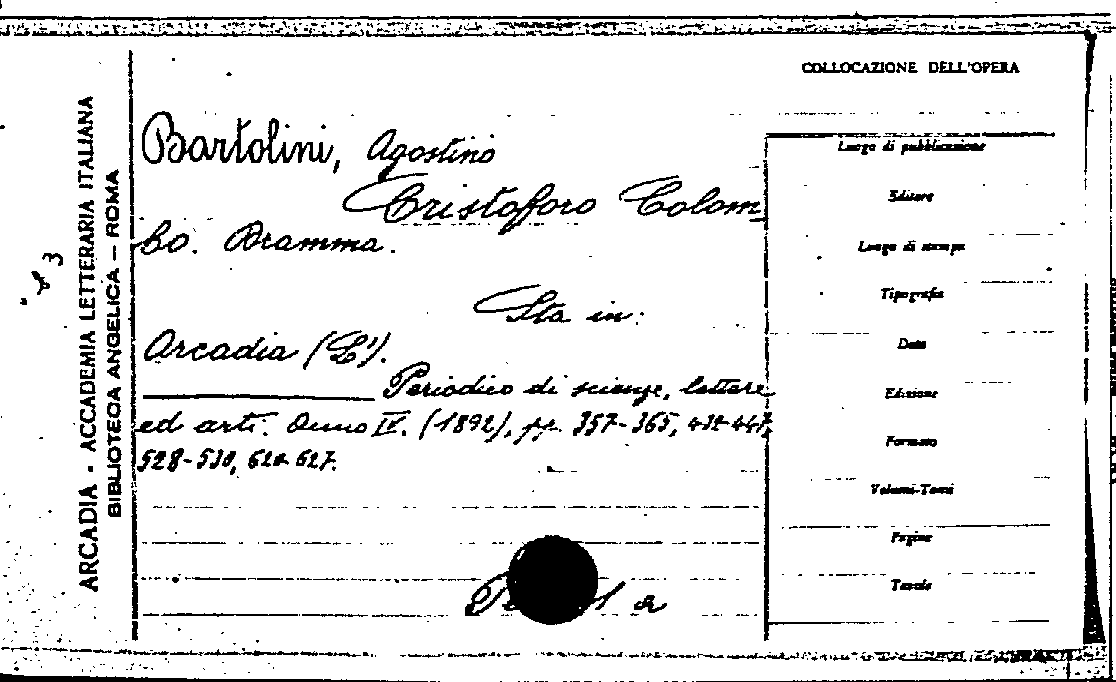 COLLOCAZIONE DELL'OPERA
ARCADIA - ACCADEMIA LETTERARIA ITALIANA
BIBLIOTECA ANGELICA — ROMA
Bartolini, Agostino
Cristoforo Colom-
bo. Dramma.
Sta in:
Arcadia (L').
Periodico di scienze, lettere
ed arti. Anno IV. (1892), pp. 357-365, 432-447,
528-530, 620-627.
Luogo di pubblicazione
Editore
Luogo di stampa
Tipografia
Data
Edizione
Formato
Volumi-Tomi
Pagine
Tavole